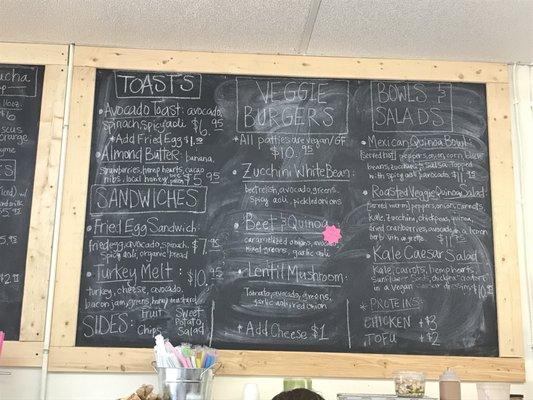 TOASTS
• AVOCADO TOAST: avocado,
spinach, spicy aoli $6.95
* Add Fried Egg $1.50
• Almond Butter: banana,
strawberries, hemp hearts, cacao
nibs, local honey $5.95
SANDWICHES
• FRIED EGG SANDWICH:
fried egg, avocado, spinach, $7.95
spicy aoli, organic bread
• TURKEY MELT: $10.95
turkey, cheese, avocado,
bacon jam, greens, honey mustard
SIDES: Fruit
Chips
Sweet
Potato
Salad
VEGGIE
BURGERS
* All patties are vegan/GF
$10.95
• ZUCCHINI WHITE BEAN:
beet relish, avocado, greens,
spicy aoli, pickled onions
• Beet & Quinoa:
caramelized onions, avocado,
mixed greens, garlic aoli
• Lentil Mushroom:
Tomato, avocado, greens,
garlic aoli
* Add Cheese $1
BOWLS &
SALADS
• Mexican Quinoa Bowl:
peppers, onion, corn, black
beans, Salsa, Topped
with spicy aoli & avocado $11.95
• Roasted Veggie Quinoa Salad:
peppers, onion, carrots,
kale, zucchini, chickpeas, quinoa,
dried cranberries, avocado, in a lemon
herb vinaigrette $11.95
• Kale Caesar Salad
Kale, carrots, hemp hearts,
sunflower seeds, chickpea croutons
in a Vegan Caesar dressing $10.95
* PROTEINS:
CHICKEN +$3
TOFU +$2